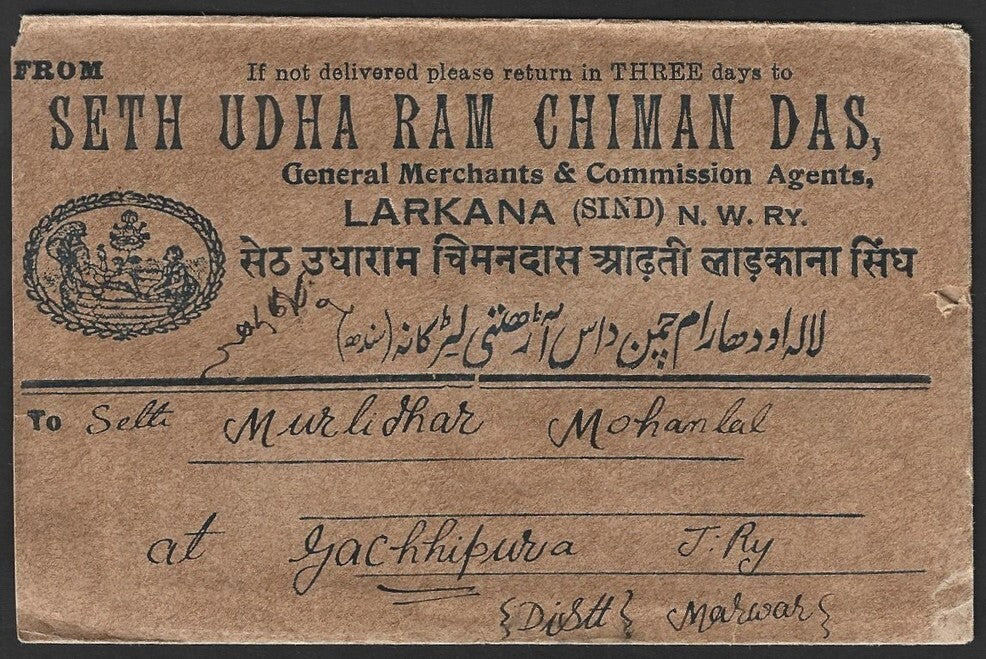 FROM
If not delivered please return in THREE days to
SETH UDHA RAM CHIMAN DAS,
General Merchants & Commission Agents,
LARKANA (SIND) N. W. RY.
सेठ उधाराम चिमनदास आढ़ती लाड़काना सिंध
لالہ اودھارام چمن داس آڑھتی لیڑکانہ (سندھ)
To Seth Murlidhar Mohanlal
at Gachhipura J. Ry
{Distt} Marwar}